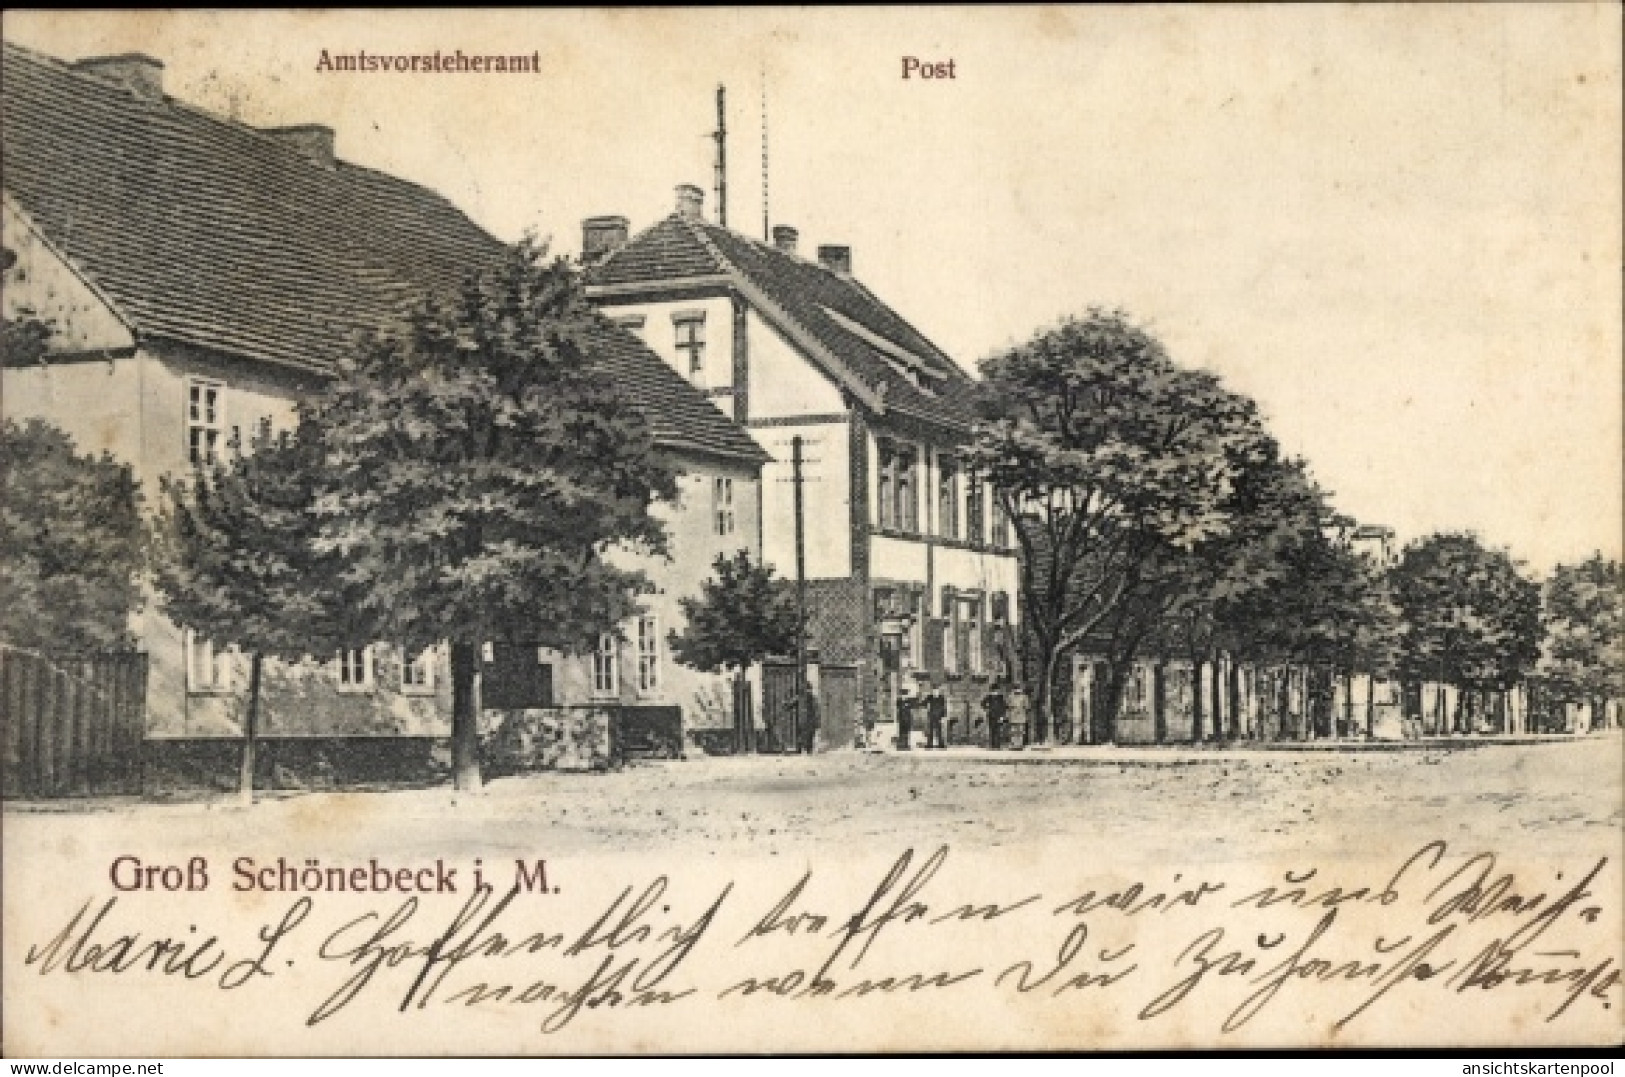 Amtsvorsteheramt
Post
Groß Schönebeck i. M.
Marie L. Hoffentlich treffen wir uns Weih-
nachten wenn Du zuhause kommst.
www.delcampe.net
ansichtskartenpool